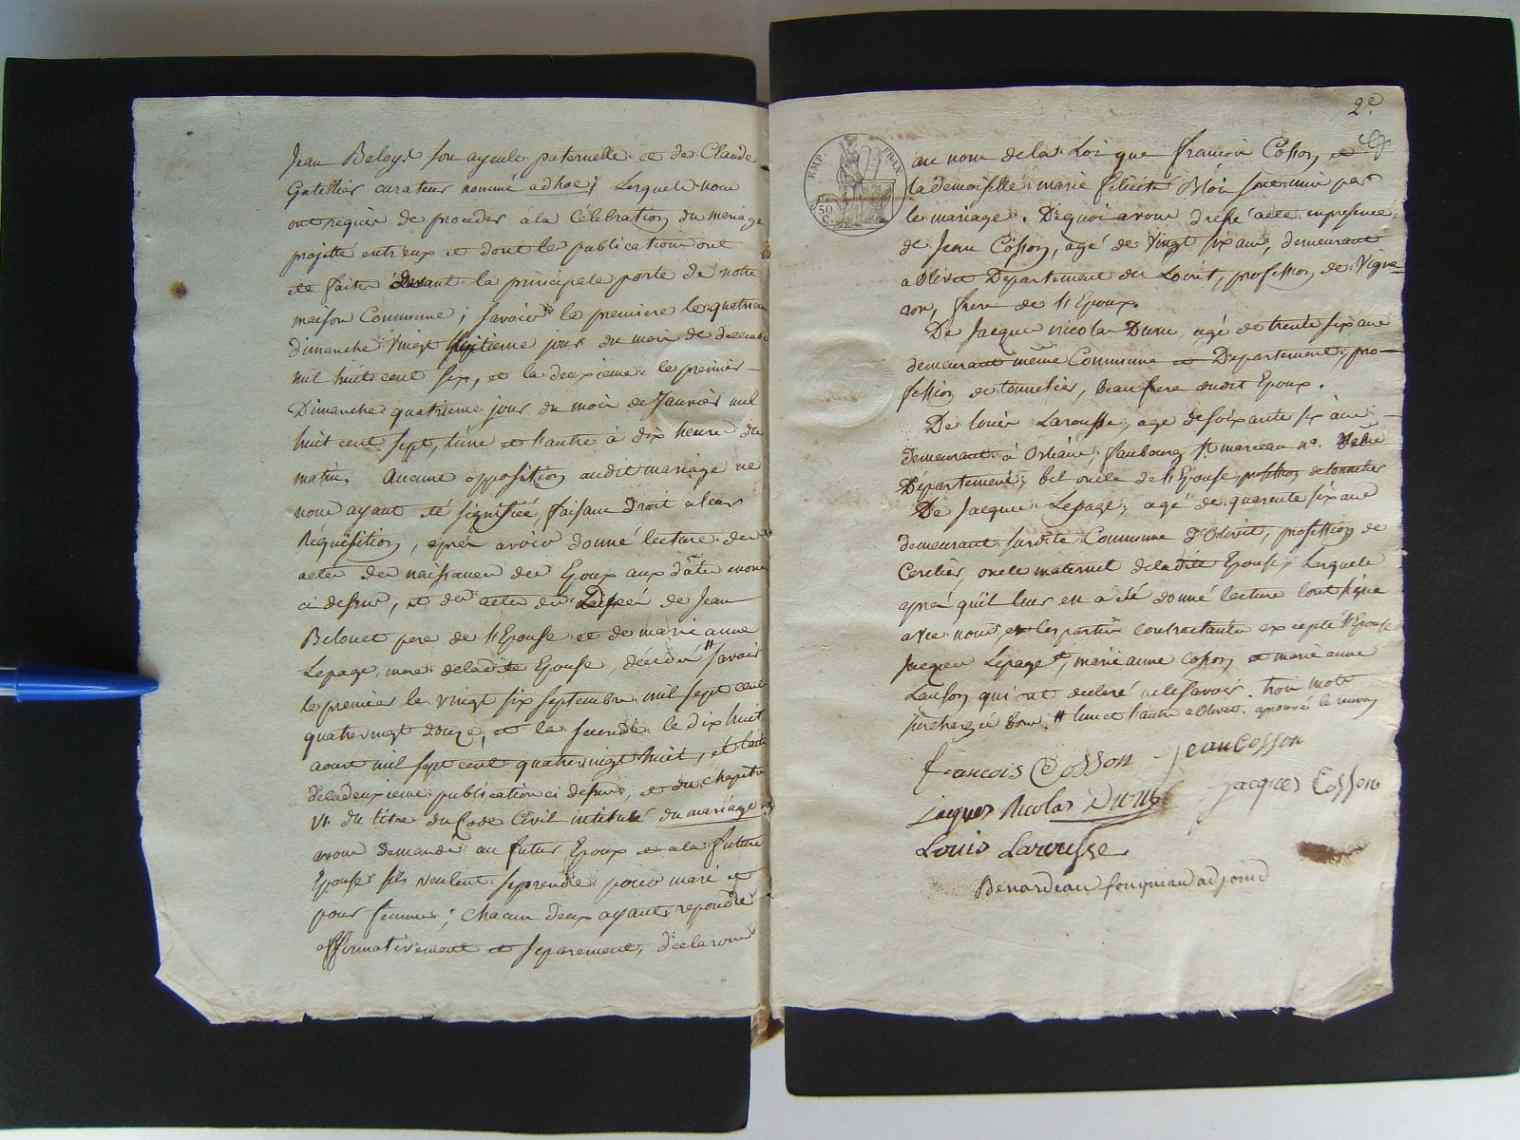 Jean Beloyé son ayeule paternelle et de Claude
Gatellier curateur nommé adhoc; lesquels nous
ont requis de proceder a la Célébration du mariage
projetté entr'eux et dont les publications ont
été faites devant la principale porte de notre
maison Commune; savoir la premiere le quatrieme
dimanche vingt huitieme jour du mois de decembre
mil huit cent six, et la deuxieme le premier
Dimanche quatrieme jour du mois de Janvier mil
huit cent sept, l'une et l'autre à dix heures du
matin. Aucune opposition audit mariage ne
nous ayant été signifiée, faisant droit a leur
Réquisition, après avoir donné lecture des
actes de naissance des Epoux aux dates
ci dessus, et des actes de Décés de Jean
Belouet pere de l'Epouse et de marie anne
Lepage mere de ladite Epouse, décédés savoir
le premier le vingt six septembre mil sept cent
quatrevingt douze, et la seconde le dix huit
aout mil sept cent quatrevingt huit, et l'acte
de la deuxieme publication ci dessus, et du chapitre
VI du titre du Code Civil intitulé du mariage
avons demandé au futur Epoux et a la future
Epouse s'ils veulent se prendre pour mari et
pour femme; chacun deux ayant repondu
affirmativement et separement, déclarons
2e
EMP. FRAN.
50
au nom de la Loi que francois Cosson et
la demoiselle marie felicité sont unis par
le mariage. De quoi avons dressé acte en presence
de Jean Cosson, agé de vingt six ans, demeurant
a Olivet Departement du Loiret, profession de Vigne-
ron, frere de l'Epoux.
De Jacques nicolas Dunu agé de trente six ans
demeurant même Commune et Departement, pro-
fession de tonnelier, beau frere dudit Epoux.
De louis Larousse, agé de soixante six ans
demeurant à Orléans, faubourg St marceau n°.
Département, bel oncle de l'Epouse profession de tonnelier
De Jacques Lepage, agé de quarante six ans
demeurant susdite Commune d'Olivet, profession de
Cerclier, oncle maternel de ladite Epouse, Lesquels
après qu'il leur en a été donné lecture l'ont signé
avec nous et les parties contractantes excepté l'Epouse
Jacques Lepage, marie anne Cosson et marie anne
qui ont declaré ne le savoir. trois mots
l'un et l'autre a Olivet. approuvé le renvoy
francois Cosson Jean Cosson
jacques Nicolas Dunu jacques Cosson
Louis Larousse
Benardeau fouqueau adjoint